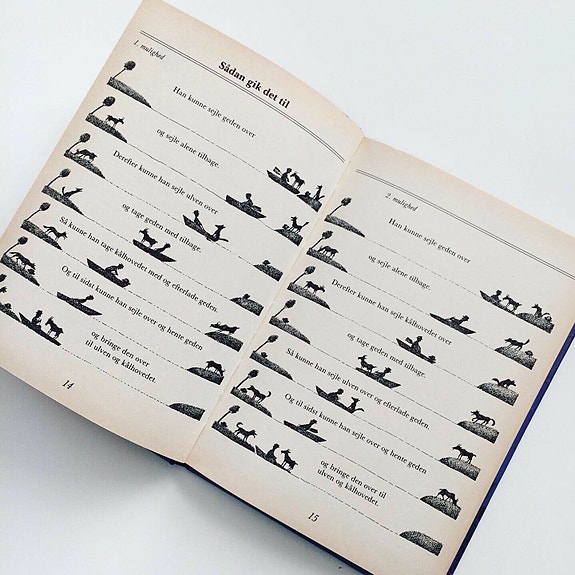 1. mulighed
Sådan gik det til
Han kunne sejle geden over
og sejle alene tilbage.
Derefter kunne han sejle ulven over
og tage geden med tilbage.
Så kunne han tage kålhovedet med og efterlade geden.
Og til sidst kunne han sejle over og hente geden
og bringe den over
til ulven og kålhovedet.
14
2. mulighed
Han kunne sejle geden over
og sejle alene tilbage.
Derefter kunne han sejle kålhovedet over
og tage geden med tilbage.
Så kunne han sejle ulven over og efterlade geden.
Og til sidst kunne han sejle over og hente geden
og bringe den over til
ulven og kålhovedet.
15